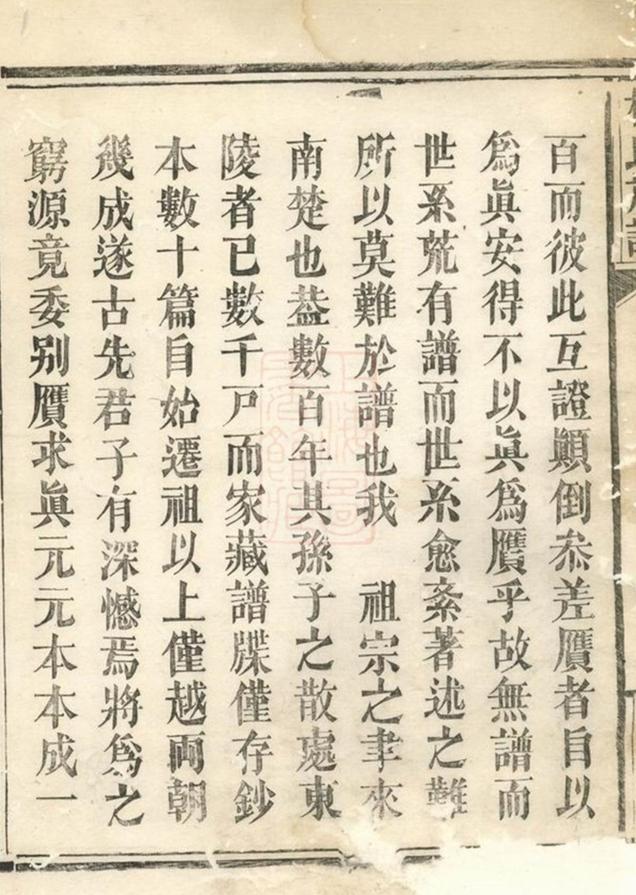 百而彼此互證顛倒叅差贋者自以
爲眞安得不以眞爲贋乎故無譜而
世系荒有譜而世系愈紊著述之難
所以莫難於譜也我　祖宗之聿來
南楚也葢數百年其孫子之散處東
陵者已數千戸而家藏譜牒僅存鈔
本數十篇自始遷祖以上僅越兩朝
幾成遂古先君子有深憾焉將爲之
窮源竟委别贋求眞元元本本成一